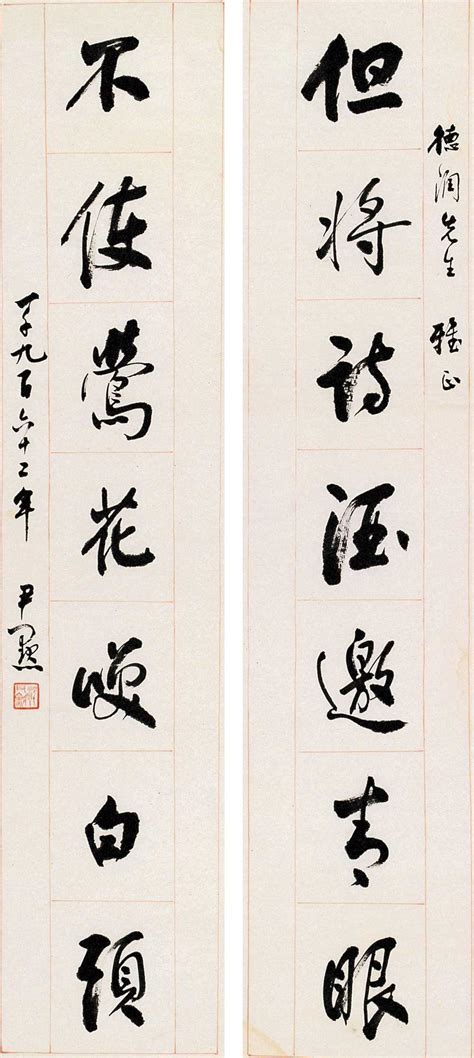 德潤先生 雅正
但将詩酒邀青眼
不使鶯花咲白頭
一千九百六十二年 尹默